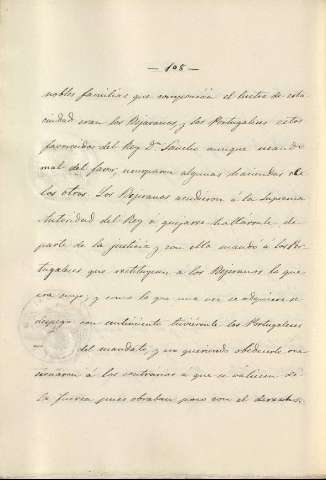 — 108 —
nobles familias que componian el lustre de esta
ciudad eran los Bejaranos, y los Portugaleses estos
favorecidos del Rey Dn Sancho aunque usando
mal del favor, usurparon algunas haciendas de
los otros. Los Bejaranos acudieron á la Suprema
Autoridad del Rey á quejarse hallaronle de
parte de la justicia y con ella mandó a los Por-
tugaleses que restituyan a los Bejaranos lo que
era suyo; y como lo que una vez se adquiere se
despega con sentimiento tuvieronle los Portugaleses
del mandato, y no queriendo obedecerle
á los contrarios á que se valiesen de
la fuerza pues obraban poco con el derecho.